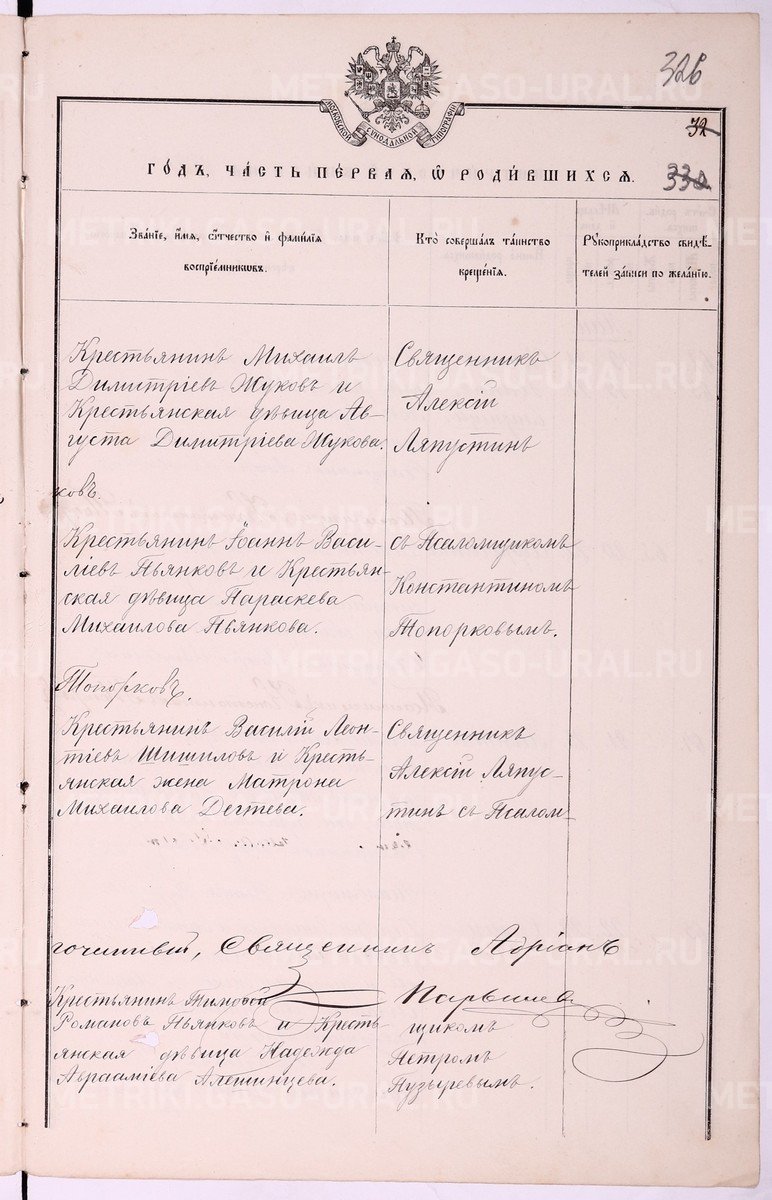 326
МОСКОВСКОЙ СѴНОДАЛЬНОЙ ТИПОГРАФІИ
32
330
ГОДЪ, ЧАСТЬ ПЕРВАЯ, Ѡ РОДИВШИХСЯ.
Званіе, имя, отчество и фамилія
воспріемниковъ.
Кто совершалъ таинство
крещенія.
Рукоприкладство свидѣ-
телей записи по желанію.
Крестьянинъ Михаилъ
Димитріевъ Жуковъ и
Крестьянская дѣвица Ав-
густа Димитріева Жукова.
Священникъ
Алексій
Ляпустинъ
ковъ.
Крестьянинъ Іоаннъ Васи-
ліевъ Пьянковъ и Крестьян-
ская дѣвица Параскева
Михаилова Пьянкова.
съ Псаломщикомъ
Константиномъ
Топорковымъ.
Топорковъ.
Крестьянинъ Василій Леон-
тіевъ Шишиловъ и Кресть-
янская жена Матрона
Михаилова Дегтева.
Священникъ
Алексій Ляпус-
тинъ съ Псалом-
гочинный, Священникъ Адріанъ
Крестьянинъ Тимофей
Романовъ Пьянковъ и Кресть-
янская дѣвица Надежда
Авраамiева Алешинцева.
щикомъ
Петромъ
Пузыревымъ.
METRIKI.GASO-URAL.RU